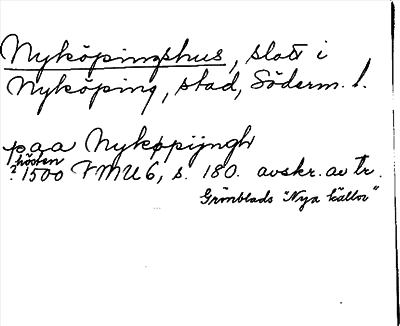 Nyköpingshus, slott i
Nyköping, stad, Söderm. l.
paa Nykøpijngh
? hösten 1500 FMU 6, s. 180. avskr. av tr.
Grönblads "Nya källor"